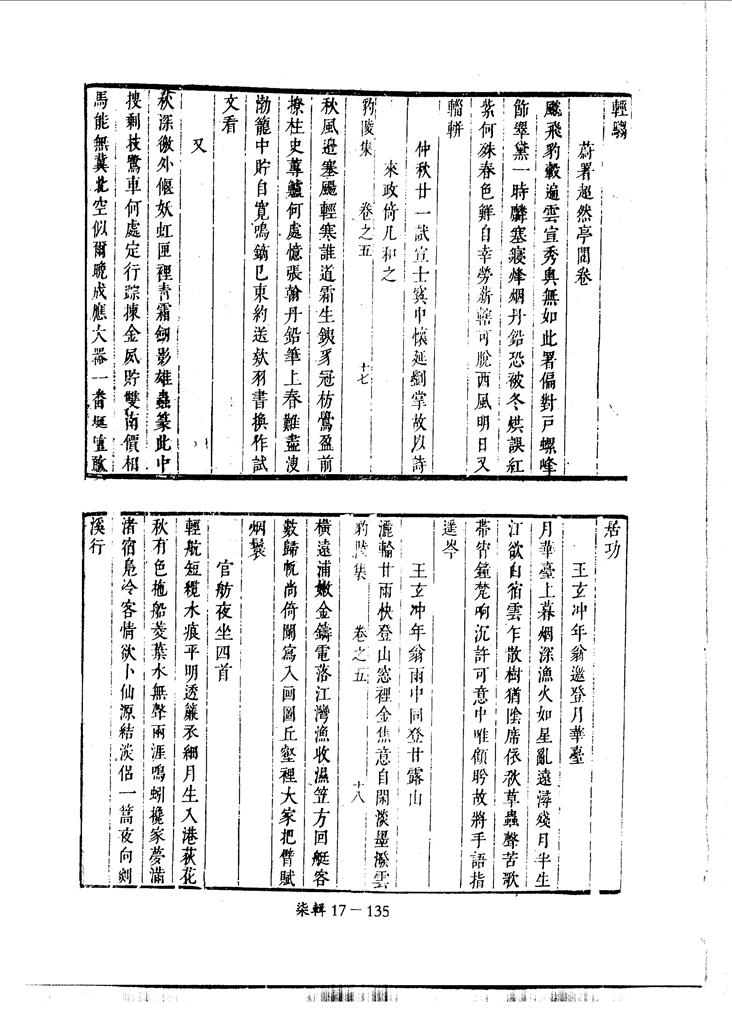 輕騶
蔚署超然亭閱卷
飇飛豹轂遍雲宣秀奧無如此署偏對戸螺峰
節翠黛一時麟塞寢烽烟丹鉛恐被冬烘誤紅
紫何殊春色鮮自幸勞薪轄可脫西風明日又
輜軿
仲秋廿一試宣士冀中懷延劉掌故以詩
來政倚几和之
豹陵集 卷之五 十七
秋風逓塞颺輕寒誰道霜生鐵豸冠枋鶯盈前
撩柱史蓴鱸何處憶張翰丹鉛筆上春難盡溲
渤籠中貯自寬鳴鏑已東約送欵羽書換作試
文看
又
秋深徼外偃妖虹匣裡青霜劒影雄蟲篆此中
搜剩枝鷩車何處定行踪揀金夙貯雙南價相
馬能無冀北空似爾晚成應大器一番
居功
王玄冲年翁邀登月華臺
月華臺上暮烟深漁火如星亂遠潯殘月半生
江欲白宿雲乍散樹猶陰席依秋草蟲聲苦歌
帶宵鐘梵响沉許可意中唯顧盻故將手語指
遥岑
王玄冲年翁雨中同登甘露山
灑輪廿雨快登山窓裡金焦意自閑淡墨潑雲
豹陵集 卷之五 十八
橫遠浦嫩金鑄電落江灣漁收濕笠方回艇客
數歸帆尚倚闌寫入画圖丘壑裡大家把臂賦
烟鬟
官舫夜坐四首
輕航短纜水痕平明透簾衣細月生入港荻花
秋有色拖船菱葉水無聲兩涯鳴蚓攙家夢滿
渚宿凫冷客情欲卜仙源結淡侶一篙夜向剡
溪行
柒輯 17－135